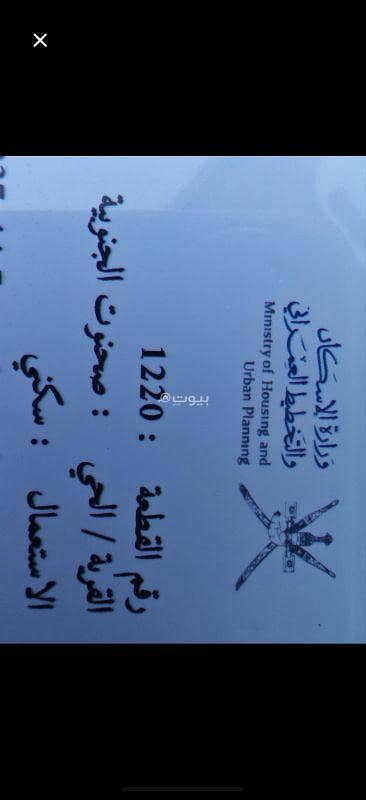 وزارة الإسكان
والتخطيط العمراني
Ministry of Housing and
Urban Planning
رقم القطعة : 1220
القرية / الحي : صحنوت الجنوبية
الاستعمال : سكني
بيوت